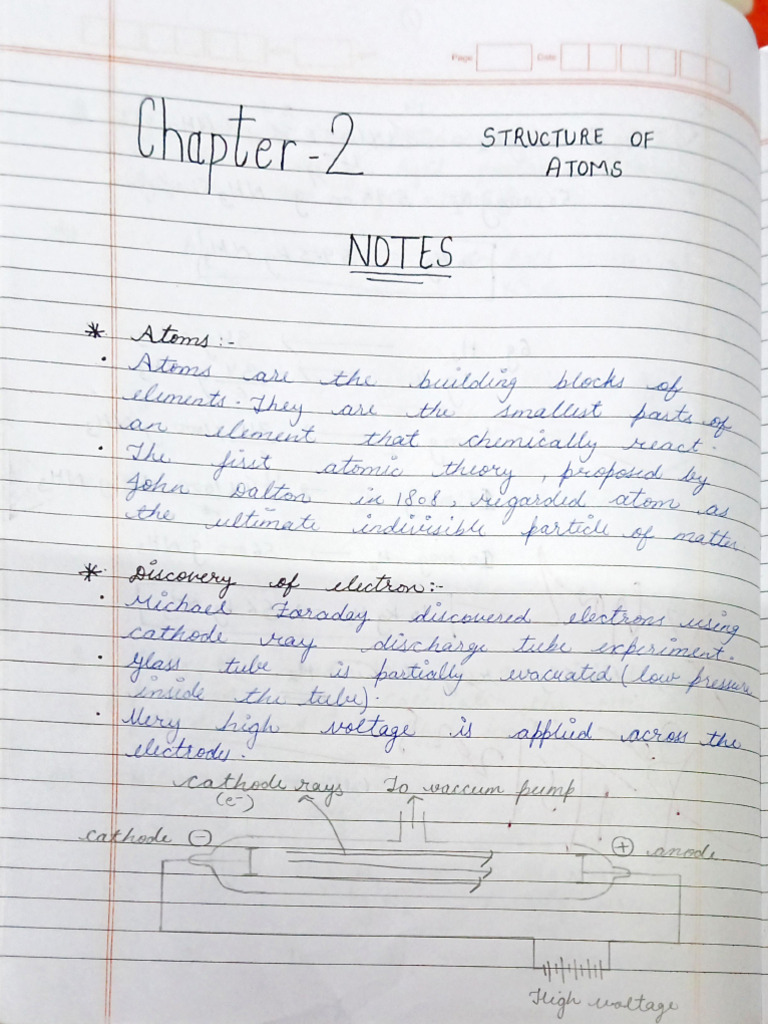 Page Date
Chapter-2
STRUCTURE OF
ATOMS
NOTES
* Atoms:-
• Atoms are the building blocks of
elements. They are the smallest parts of
an element that chemically react.
• The first atomic theory, proposed by
John Dalton in 1808, regarded atom as
the ultimate indivisible particle of matter.
* Discovery of electron:-
• Michael Faraday discovered electrons using
cathode ray discharge tube experiment.
• Glass tube is partially evacuated (low pressure
inside the tube).
• Very high voltage is applied across the
electrodes.
cathode rays To vaccum pump
(e-)
cathode (-) (+) anode
High voltage